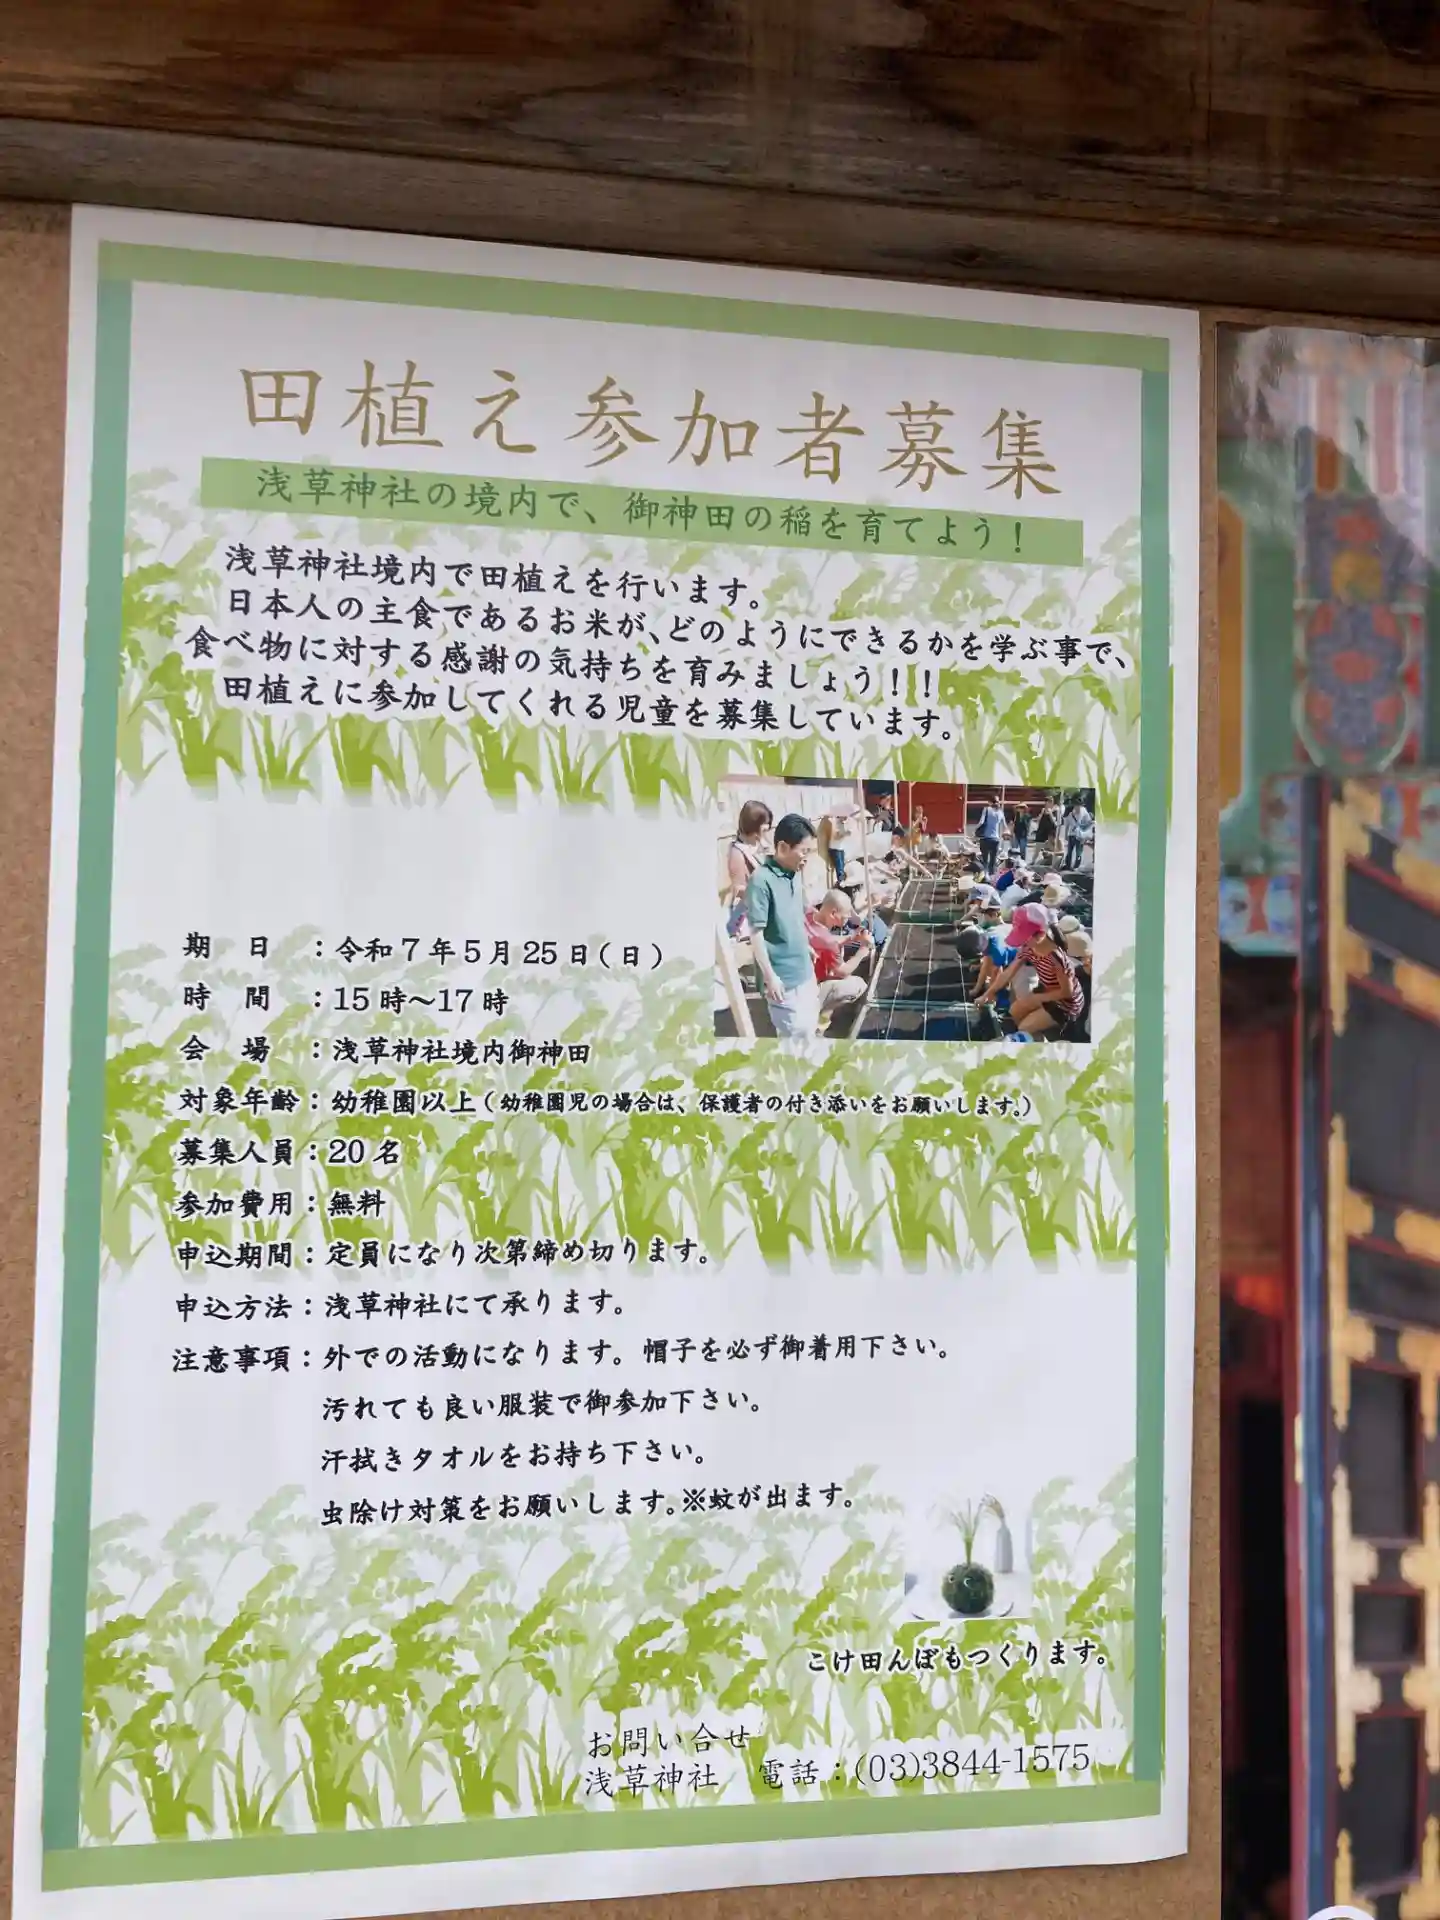 田植え参加者募集
浅草神社の境内で、御神田の稲を育てよう！
浅草神社境内で田植えを行います。
日本人の主食であるお米が、どのようにできるかを学ぶ事で、
食べ物に対する感謝の気持ちを育みましょう！！
田植えに参加してくれる児童を募集しています。
期　日　：令和7年5月25日(日)
時　間　：15時～17時
会　場　：浅草神社境内御神田
対象年齢：幼稚園以上（幼稚園児の場合は、保護者の付き添いをお願いします。）
募集人員：20名
参加費用：無料
申込期間：定員になり次第締め切ります。
申込方法：浅草神社にて承ります。
注意事項：外での活動になります。帽子を必ず御着用下さい。
汚れても良い服装で御参加下さい。
汗拭きタオルをお持ち下さい。
虫除け対策をお願いします。※蚊が出ます。
こけ田んぼもつくります。
お問い合せ
浅草神社　電話：(03)3844-1575